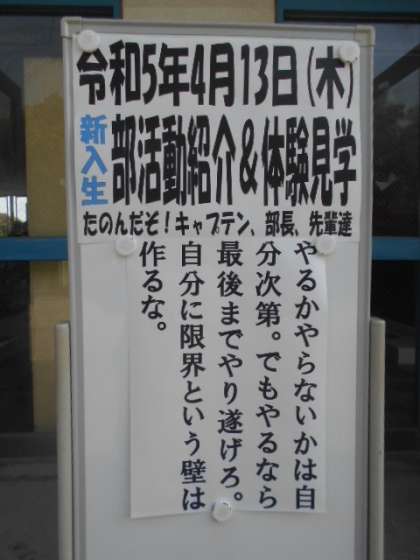 令和5年4月13日(木)
新入生 部活動紹介&体験見学
たのんだぞ!キャプテン、部長、先輩達
やるかやらないかは自
分次第。でもやるなら
最後までやり遂げろ。
自分に限界という壁は
作るな。